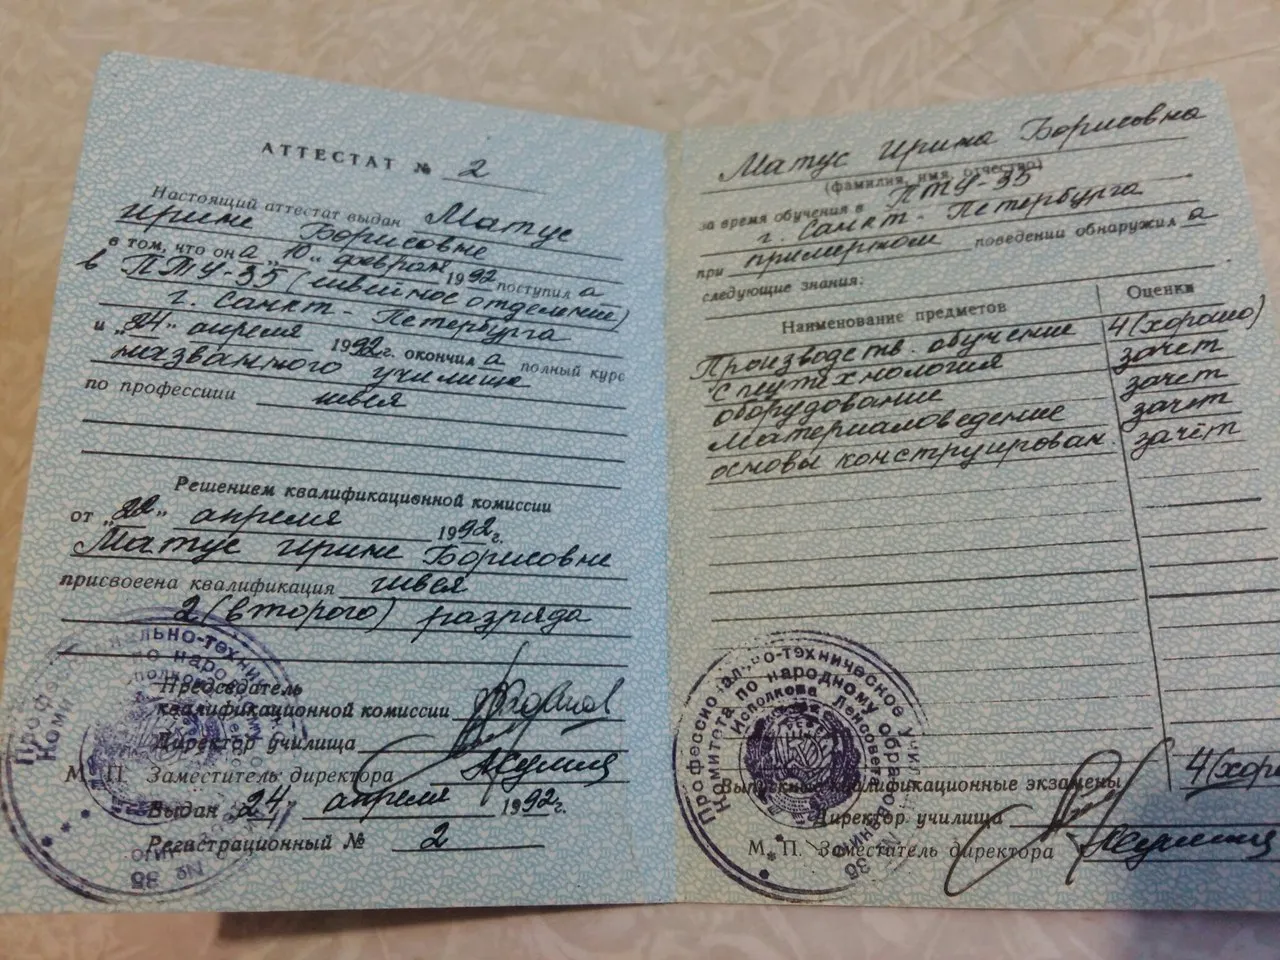 АТТЕСТАТ № 2
Настоящий аттестат выдан Матус
Ирине Борисовне
в том, что он а „10" февраля 1992 поступил а
в ПТУ-35 (швейное отделение)
г. Санкт-Петербурга
и „24" апреля 1992 г. окончил а полный курс
названного училища
по профессии швея
Решением квалификационной комиссии
от „22" апреля 1992 г.
Матус Ирине Борисовне
присвоена квалификация швея
2 (второго) разряда
Председатель
квалификационной комиссии
Директор училища
М. П. Заместитель директора
Выдан 24 апреля 1992 г.
Регистрационный № 2
Матус Ирина Борисовна
(фамилия, имя, отчество)
за время обучения в ПТУ-35
г. Санкт-Петербурга
при примерном поведении обнаружил а
следующие знания:
Наименование предметов Оценки
Производств. обучение 4 (хорошо)
спецтехнология зачет
оборудование зачет
материаловедение зачет
основы конструирован. зачёт
Выпускные квалификационные экзамены 4 (хор
Директор училища
М. П. Заместитель директора
Профессионально-техническое учил
Комитета по народному образованию
Исполкома Ленсовета